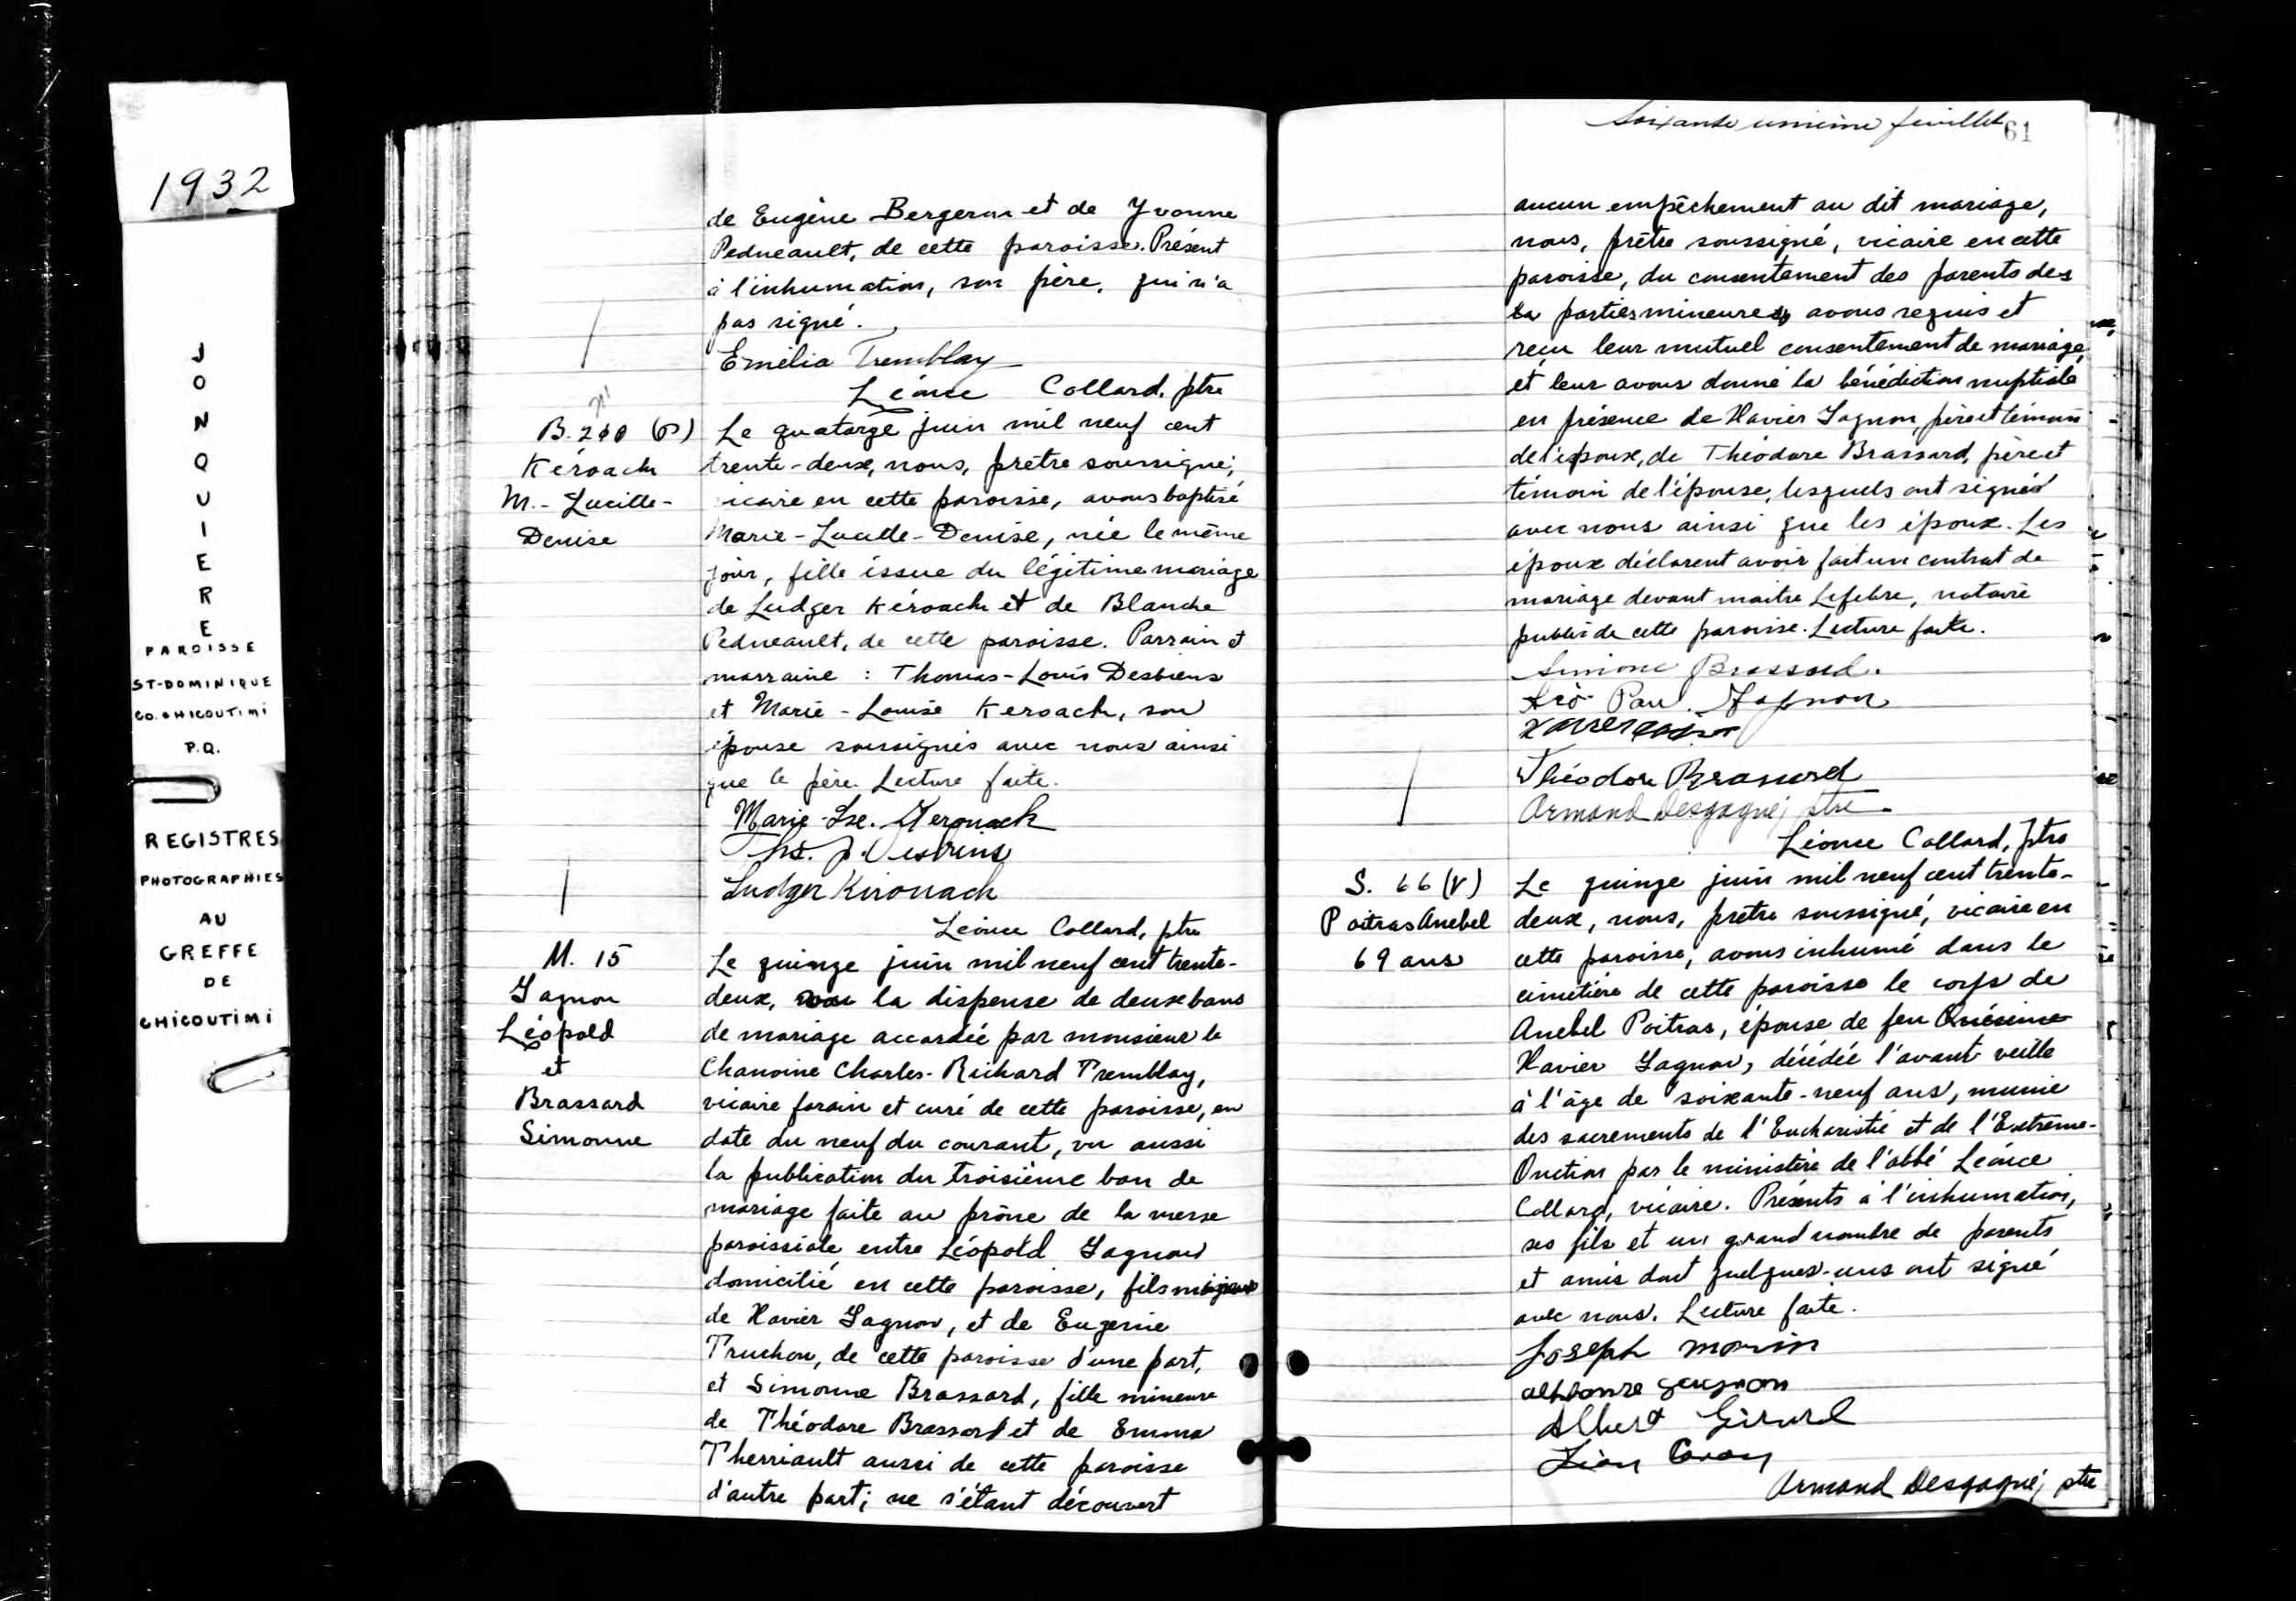 1932
JONQUIERE
PAROISSE
ST-DOMINIQUE
CO. CHICOUTIMI
P.Q.
REGISTRES
PHOTOGRAPHIES
AU
GREFFE
DE
CHICOUTIMI
de Eugène Bergeron et de Yvonne
Pedneault, de cette paroisse. Présent
à l'inhumation, son père, qui n'a
pas signé.
Emélia Tremblay
Léonce Collard, ptre
B. 260 (P)
Kéroach
M.-Lucille-
Denise
Le quatorze juin mil neuf cent
trente-deux, nous, prêtre soussigné,
vicaire en cette paroisse, avons baptisé
Marie-Lucille-Denise, née le même
jour, fille issue du légitime mariage
de Ludger Kéroach et de Blanche
Pedneault, de cette paroisse. Parrain et
marraine : Thomas-Louis Desbiens
et Marie-Louise Keroach, son
épouse soussignés avec nous ainsi
que le père. Lecture faite.
Marie-Lse. Kerouack
Ths. Desbiens
Ludger Kirouack
Léonce Collard, ptre
M. 15
Gagnon
Léopold
et
Brassard
Simonne
Le quinze juin mil neuf cent trente-
deux, vu la dispense de deux bans
de mariage accordée par monsieur le
Chanoine Charles-Richard Tremblay,
vicaire forain et curé de cette paroisse, en
date du neuf du courant, vu aussi
la publication du troisième ban de
mariage faite au prône de la messe
paroissiale entre Léopold Gagnon
domicilié en cette paroisse, fils mineur
de Xavier Gagnon, et de Eugenie
Truchon, de cette paroisse d'une part,
et Simonne Brassard, fille mineure
de Théodore Brassard et de Emma
Therriault aussi de cette paroisse
d'autre part; ne s'étant découvert
Soixante unième feuillet
61
aucun empêchement au dit mariage,
nous, prêtre soussigné, vicaire en cette
paroisse, du consentement des parents des
la parties mineures, avons requis et
reçu leur mutuel consentement de mariage,
et leur avons donné la bénédiction nuptiale
en présence de Xavier Gagnon, père et témoin
de l'époux, de Théodore Brassard, père et
témoin de l'épouse, lesquels ont signés
avec nous ainsi que les époux. Les
époux déclarent avoir fait un contrat de
mariage devant maitre Lefebre, notaire
public de cette paroisse. Lecture faite.
Simone Brassard.
Léo Paul Gagnon
Xavier Gagnon
Théodore Brassard
Armand Desgagné, ptre.
Léonce Collard, ptre
S. 66 (V)
Poitras Anebel
69 ans
Le quinze juin mil neuf cent trente-
deux, nous, prêtre soussigné, vicaire en
cette paroisse, avons inhumé dans le
cimetière de cette paroisse le corps de
Anebel Poitras, épouse de feu Onésime
Xavier Gagnon, décédée l'avant veille
à l'âge de soixante-neuf ans, munie
des sacrements de l'Eucharistie et de l'Extrême-
Onction par le ministère de l'abbé Léonce
Collard, vicaire. Présents à l'inhumation,
ses fils et un grand nombre de parents
et amis dont quelques-uns ont signé
avec nous. Lecture faite.
Joseph Morin
alphonse gaugnon
Albert Girard
Armand Desgagné, ptre